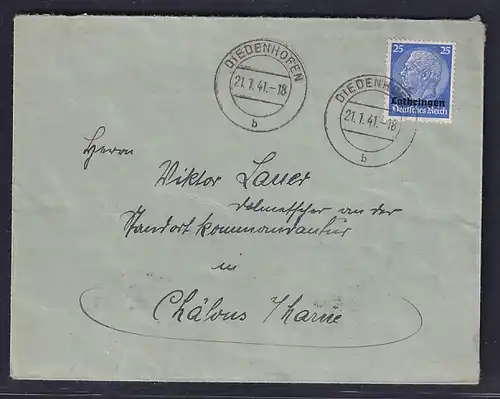 DIEDENHOFEN
21.1.41.-18
b
DIEDENHOFEN
21.1.41.-18
b
25 25
Lothringen
Deutsches Reich
Herrn
Viktor Lauer
Dolmetscher an der
Standort kommandantur
in
Châlons s/Marne